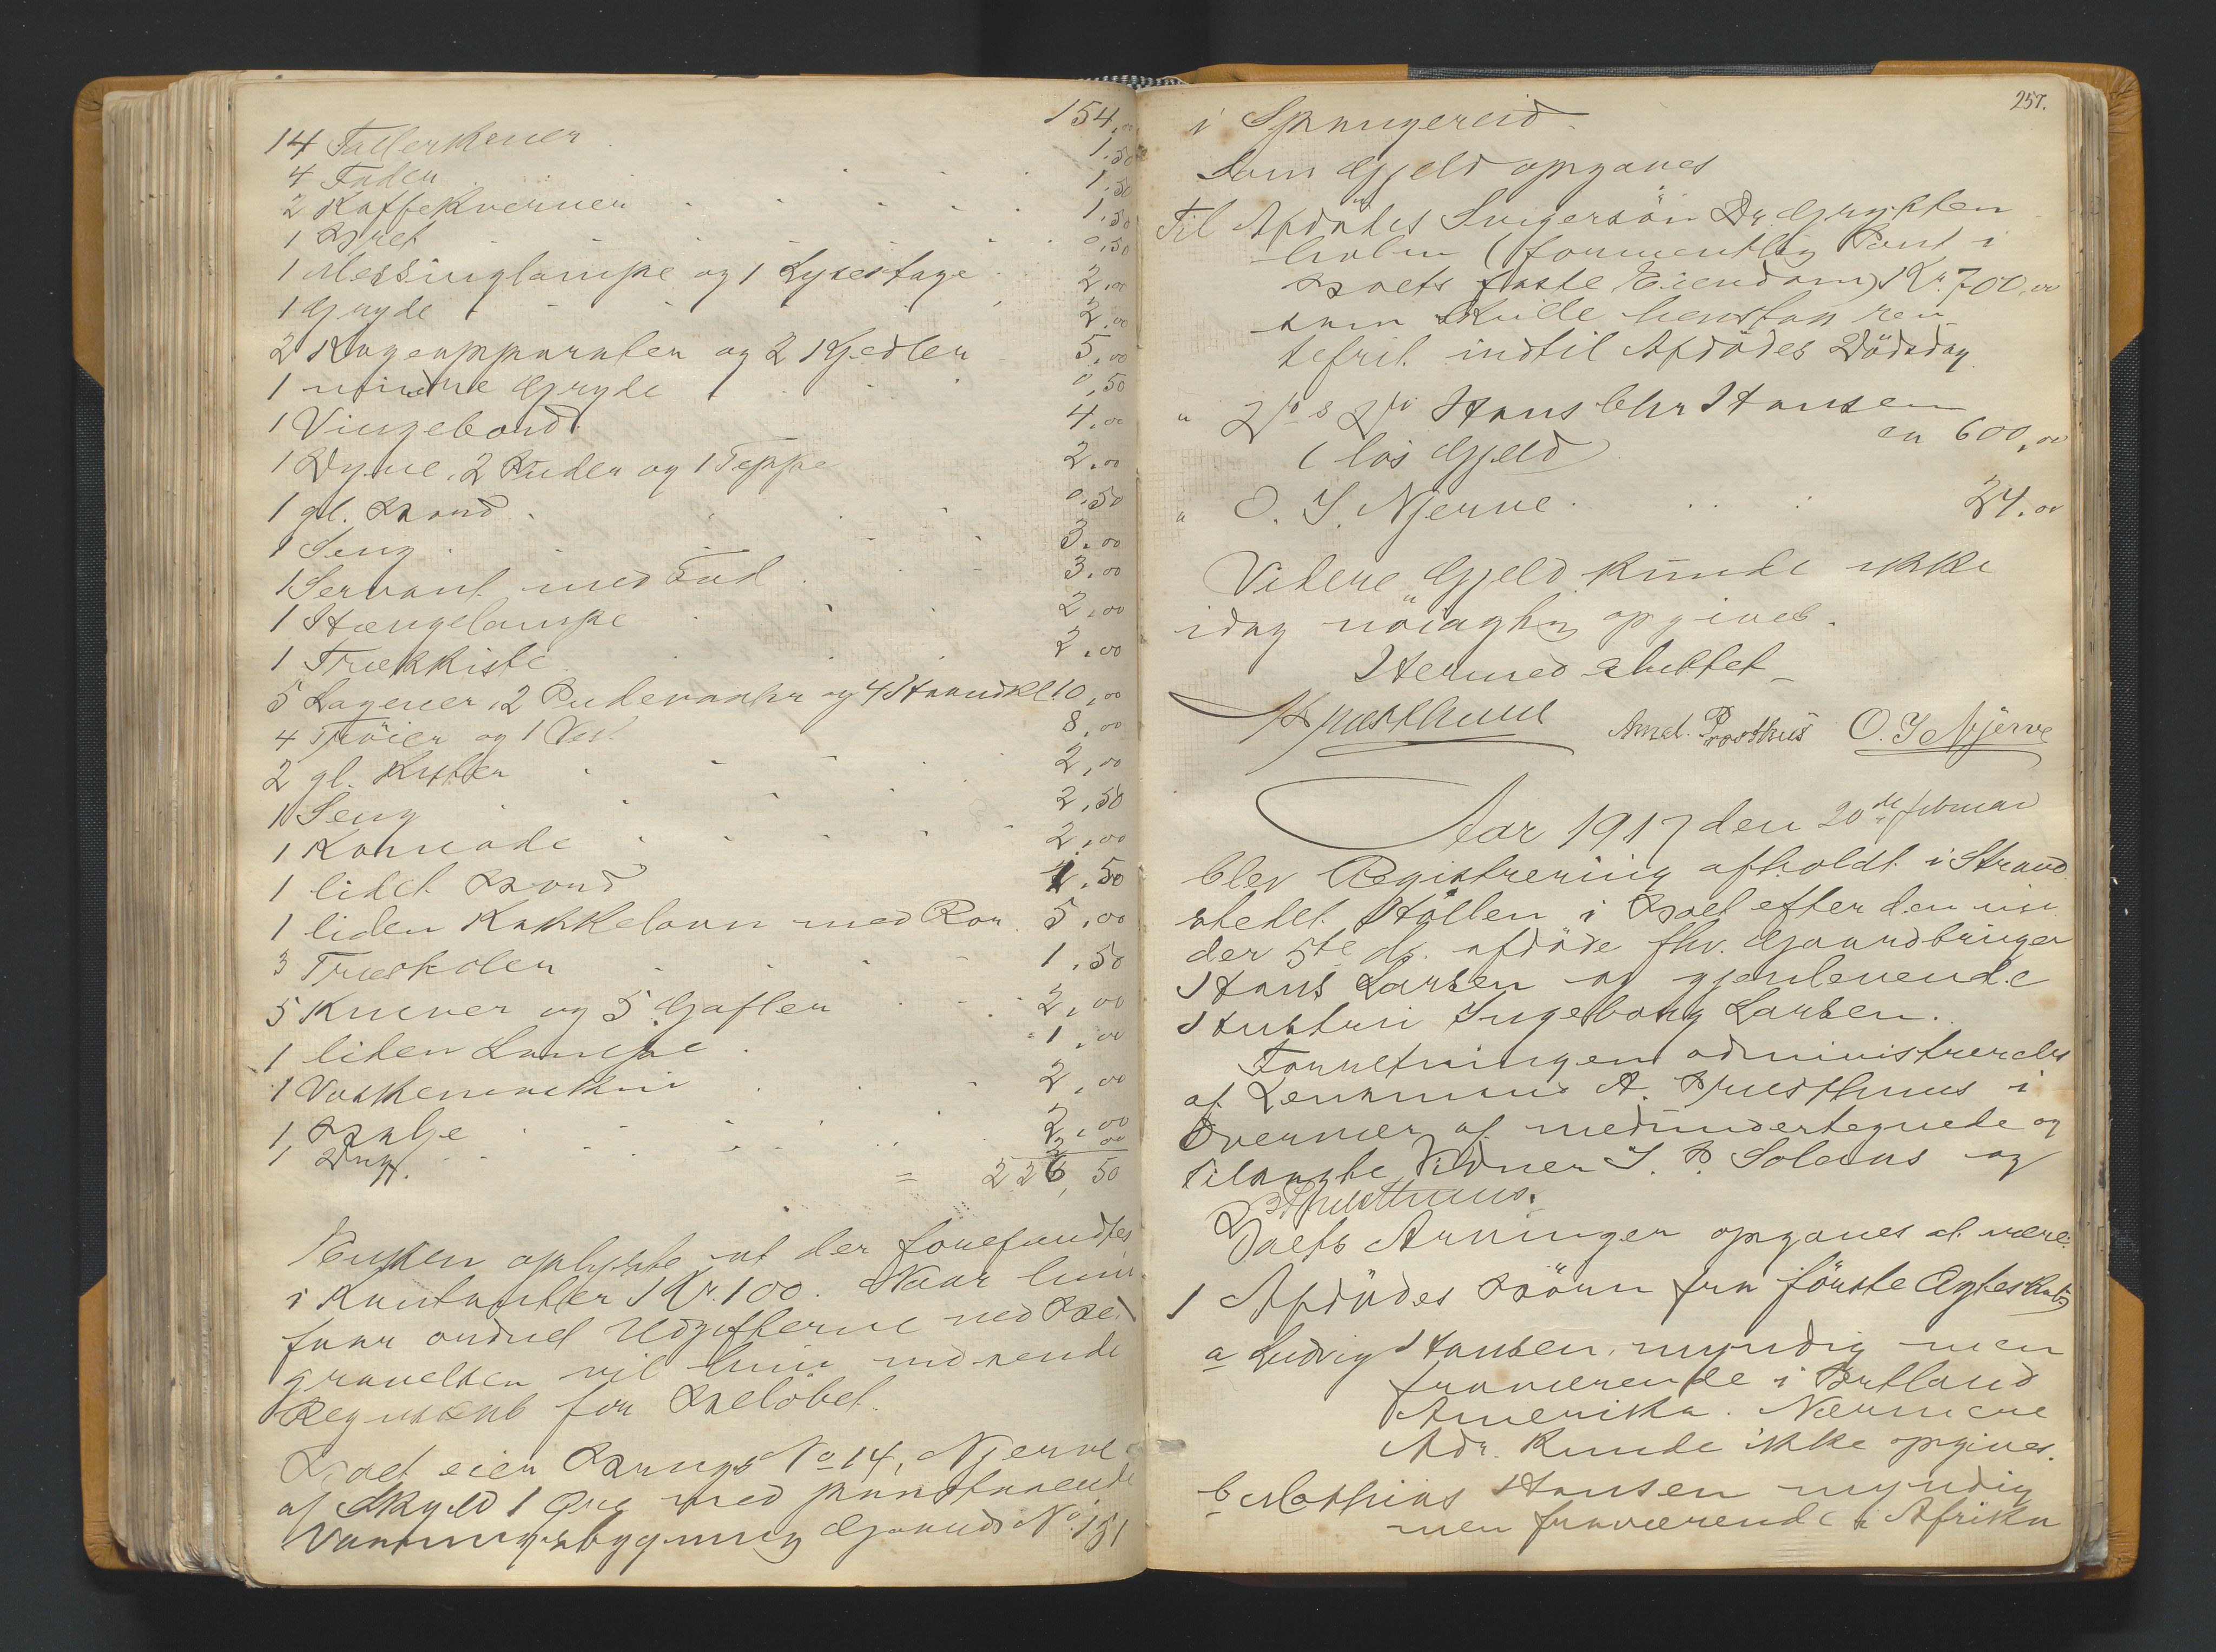 154,00
14 Tallerkener 1,50
4 Fade 1,50
2 Kaffekverner 1,50
1 Bret 0,50
1 Messinglampe og 1 Lysestage 2,00
1 Gryde 2,00
2 Kogeapparater og 2 Kjedler 5,00
1 mindre Gryde 0,50
1 Vingebord 4,00
1 Dyne, 2 Puder og 1 Teppe 2,00
1 gl. Bord 0,50
1 Seng 3,00
1 Servant med Fad 3,00
1 Hængelampe 2,00
1 Trækkiste 2,00
5 Lagener, 2 Pudevaar og 4 Haandkl 10,00
4 Trøier og 1 Vest 8,00
2 gl. Kister 2,00
1 Seng 2,50
1 Komode 2,00
1 lidet Bord 1,50
1 liden Kakkelovn med Rør 5,00
3 Træstoler 1,50
5 Kniver og 5 Gafler 2,00
1 liden Lampe 1,00
1 Vaskemaskin 2,00
1 Balje 2,00
1 Dug.
= 226,50
Enken oplyste at der forefandtes
i Kontanter Kr. 100. Naar hun
faar ordnet Udgifterne ved Be-
gravelsen vil hun indsende
Regnskab for Beløbet.
Boet eier Brugs No 14, Njerve
af Skyld 1 Øre med paastaaende
Vaaningsbygning Gaards No. 151
257.
i Spangereid.
Som Gjeld opgaves
Til Afdødes Svigersøn Dr.
holm (formentlig Pant i
Boets faste Eiendom) Kr. 700,00
som skulle henstaa ren-
tefrit indtil Afdødes Dødsdag
" Hans Chr Hansen
(løs Gjeld) ca 600,00
" O. J. Njerve 24.00
Videre Gjeld kunde ikke
idag nøiagtig opgives.
Hermed sluttet_
A Præsthuus Amal. Præsthus O. J. Njerve
Aar 1917 den 20de februar
blev Registrering afholdt i Strand
stedet Høllen i Boet efter den un-
der 5te ds. afdøde fhv. Gaardbruger
Hans Larsen og gjenlevende
Hustru Ingeborg Larsen.
Forretningen administreredes
af Lensmand A. Præsthuus i
Overvær af medundertegnede og
tilkaldte Vidner J. B. Soleaas og
Præsthuus.
Boets Arvinger opgaves at være:
1 Afdødes Børn fra første Ægteskab
a Ludvig Hansen, myndig men
fraværende i Portland
Amerika. Nærmere
Adr. kunde ikke opgives.
b Mathias Hansen myndig
men fraværende i Afrika